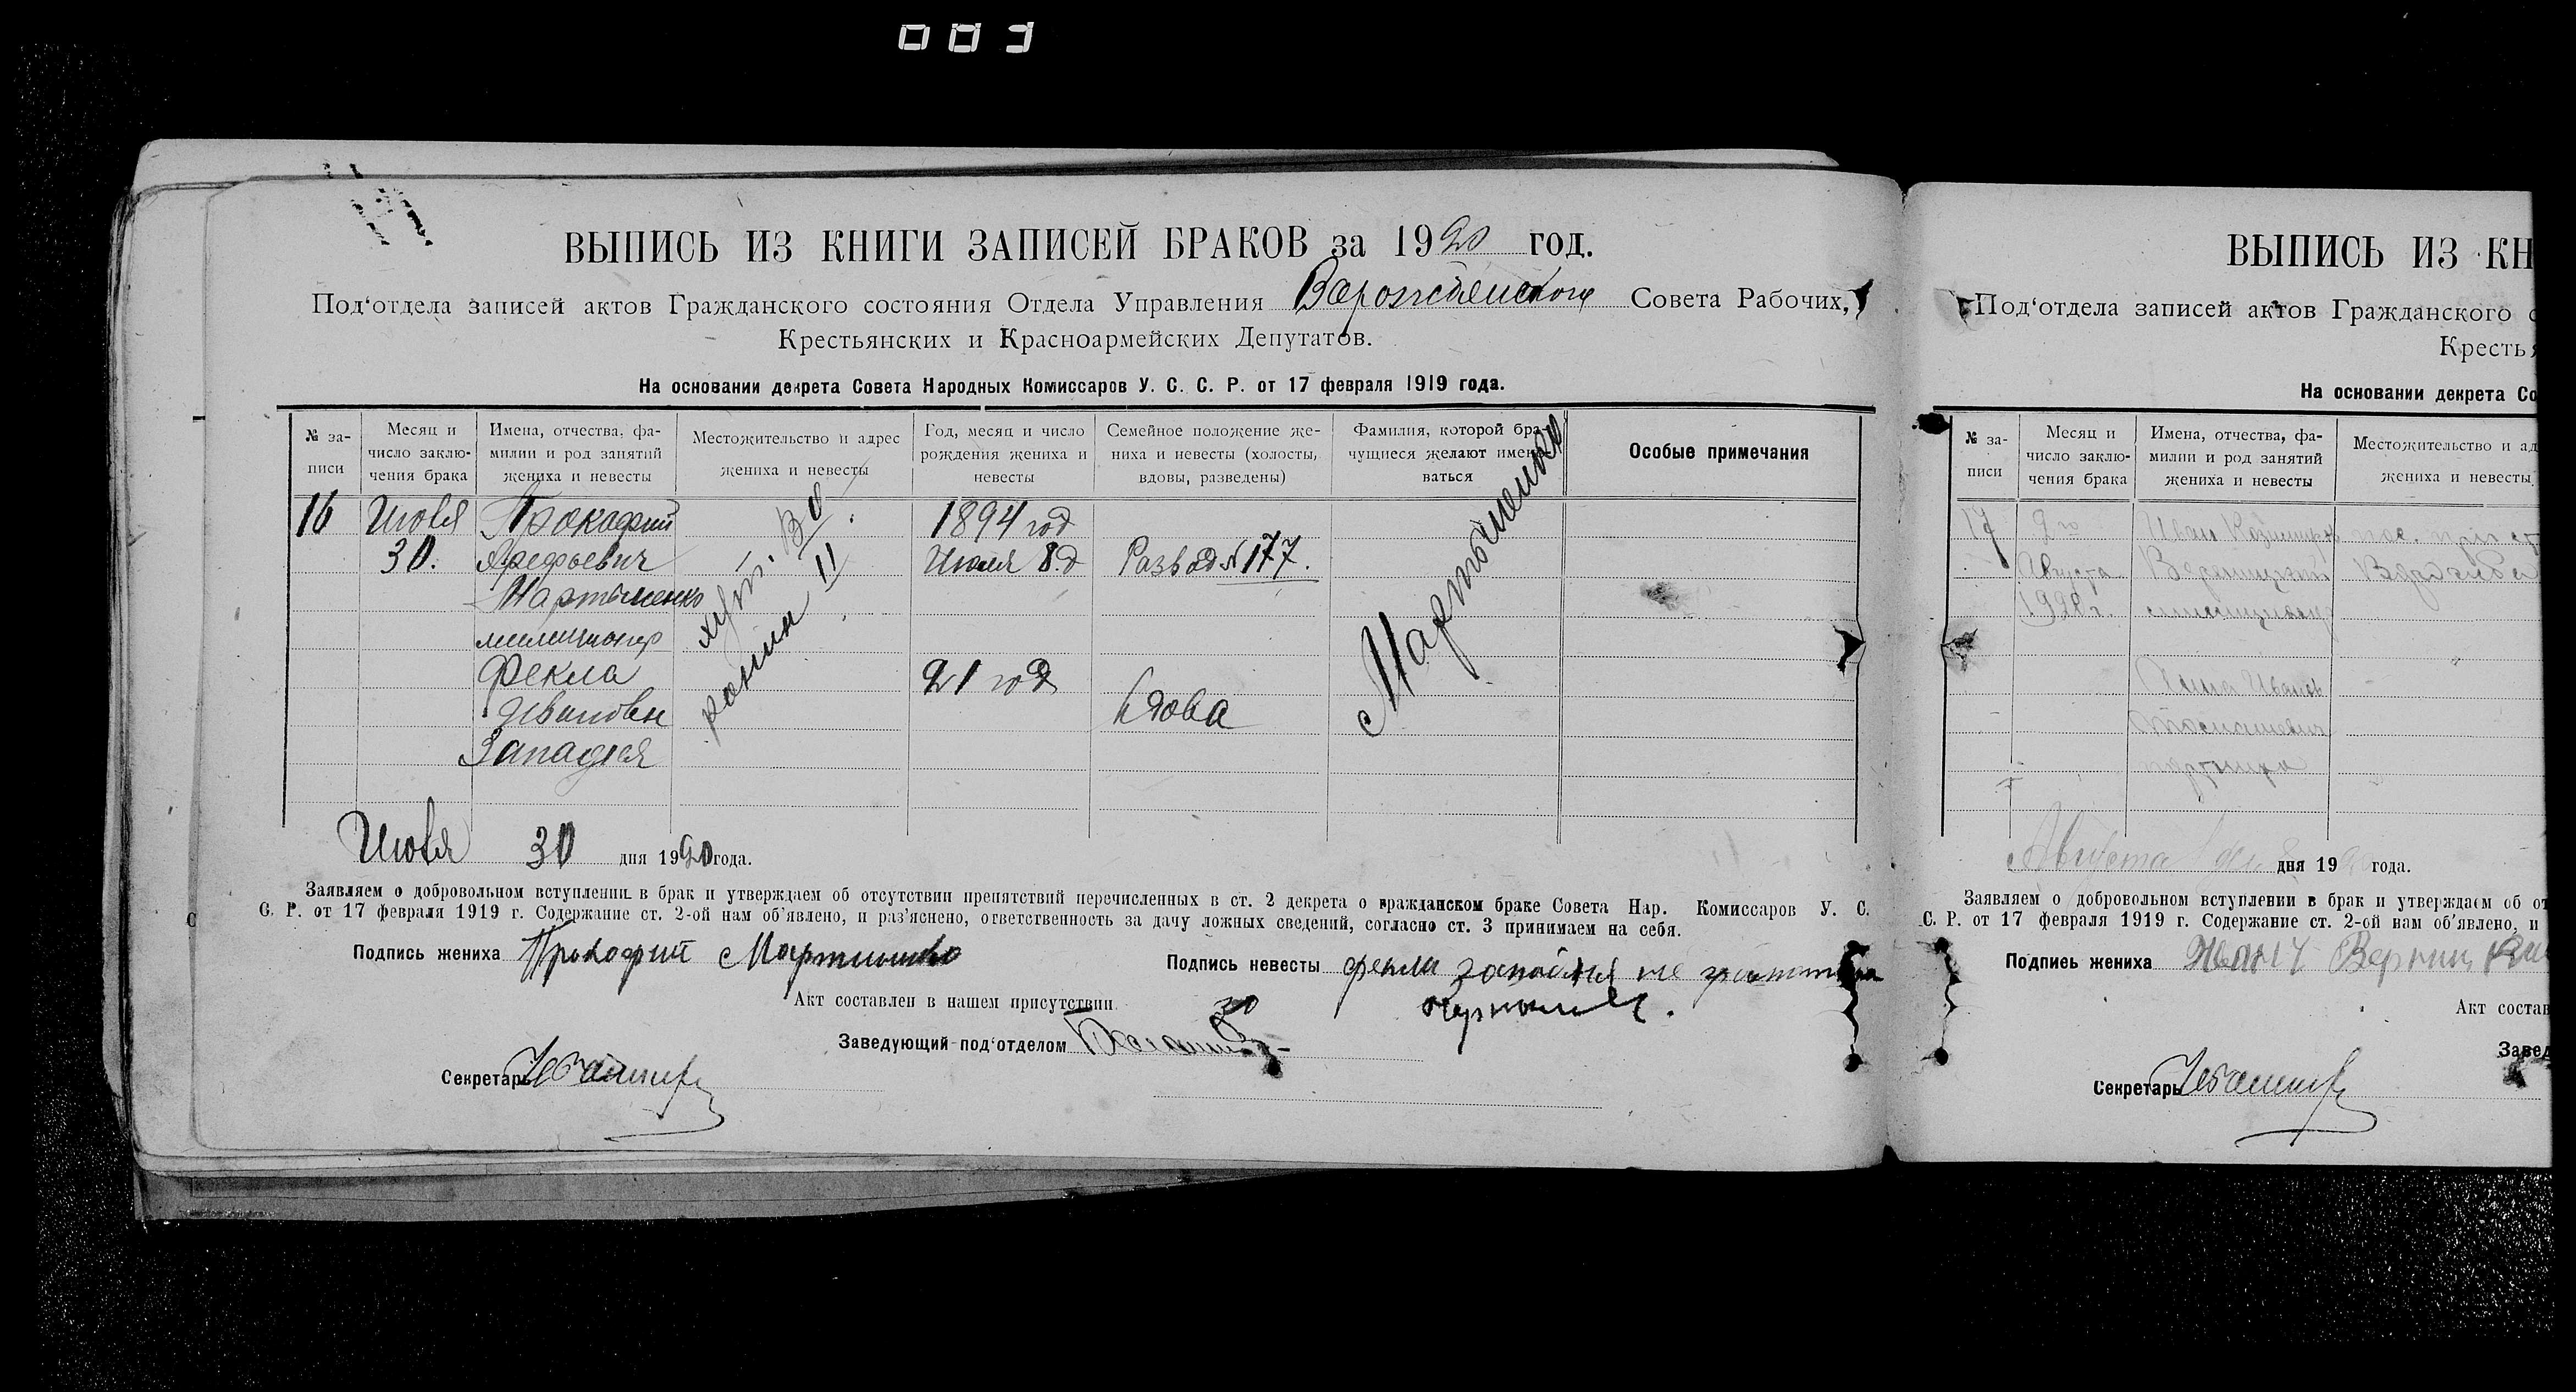 003
ВЫПИСЬ ИЗ КНИГИ ЗАПИСЕЙ БРАКОВ за 1920 год.
Под‘отдела записей актов Гражданского состояния Отдела Управления Ворожбянского Совета Рабочих,
Крестьянских и Красноармейских Депутатов.
На основании декрета Совета Народных Комиссаров У. С. С. Р. от 17 февраля 1919 года.
№ за-
писи
Месяц и
число заклю-
чения брака
Имена, отчества, фа-
милии и род занятий
жениха и невесты
Местожительство и адрес
жениха и невесты
Год, месяц и число
рождения жениха и
невесты
Семейное положение же-
ниха и невесты (холосты,
вдовы, разведены)
Фамилия, которой бра-
чущиеся желают имено-
ваться
Особые примечания
16 Июля Прокофий 1894 год
30. Арефьевич Июля 8 д Развод № 177.
Мартыненко
милиционер
Фекла 21 год
Ивановн Вдова
Западня
хут. Во
ронин
Мартыненко
Июля 30 дня 1920 года.
Заявляем о добровольном вступлении в брак и утверждаем об отсутствии препятствий перечисленных в ст. 2 декрета о гражданском браке Совета Нар. Комиссаров У. С.
С. Р. от 17 февраля 1919 г. Содержание ст. 2-ой нам об‘явлено, и раз‘яснено, ответственность за дачу ложных сведений, согласно ст. 3 принимаем на себя.
Подпись жениха Прокофий Мартиненко
Подпись невесты фекли западня не
Акт составлен в нашем присутствии
Заведующий под‘отделом
Секретарь
ВЫПИСЬ ИЗ КН
Под‘отдела записей актов Гражданского с
Крестья
На основании декрета Со
№ за-
писи
Месяц и
число заклю-
чения брака
Имена, отчества, фа-
милии и род занятий
жениха и невесты
Местожительство и ад
жениха и невесты
17 2го Иван пос. при ст
Августа
1920 г.
Анна Иванов
Августа дня 19 года.
Заявляем о добровольном вступлении в брак и утверждаем об от
С. Р. от 17 февраля 1919 г. Содержание ст. 2-ой нам об‘явлено, и
Подпись жениха
Акт состав
Завед
Секретарь